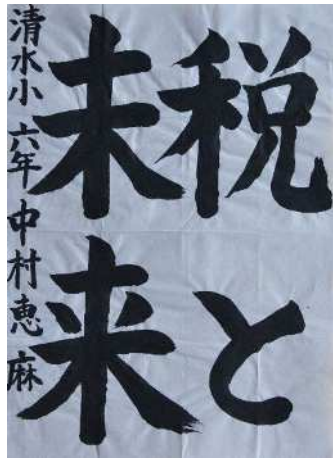 税と
未来
清水小 六年 中村恵麻